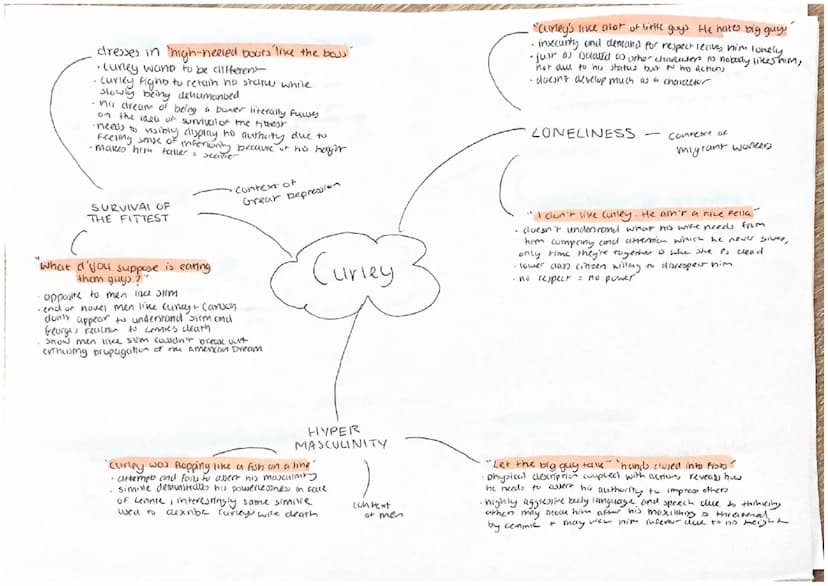 dresses in "high-heeled boots like the boss"
· Curley wants to be different
· Curley fights to retain his status while
slowly being dehumanised
· his dream of being a boxer literally focuses
on the idea of survival of the fittest
· needs to visibly display his authority due to
feeling sense of inferiority because of his height
· makes him taller =
SURVIVAL OF
THE FITTEST
context of
Great Depression
"What d'you suppose is eating
them guys?"
· opposite to men like Slim
· end of novel men like Curley + Carlson
don't appear to understand Slim and
George's reaction to Lennie's death
· show men like Slim couldn't break out
criticising propagation of the American Dream
Curley
"Curley's like alot of little guys. He hates big guys"
· insecurity and demand for respect leaves him lonely
· just as isolated as other characters as nobody likes him,
not due to his status but to his actions
· doesn't develop much as a character
LONELINESS — context of
migrant workers
"I don't like Curley. He ain't a nice fella"
· doesn't understand what his wife needs from
him company and attention which he never gives,
only time they're together is when she is dead
· lower class citizen willing to disrespect him
· no respect = no power
HYPER
MASCULINITY
"Curley was flopping like a fish on a line"
· attempts and fails to assert his masculinity
· simile demonstrates his powerlessness in face
of Lennie, interestingly same simile
used to describe Curley's wife death
context
of men
"Let the big guy talk" "hands closed into fists"
· physical description coupled with actions reveals how
he needs to assert his authority to impress others
· highly aggressive body language and speech due to thinking
others may mock him after his masculinity is threatened
by Lennie + may view him inferior due to his height